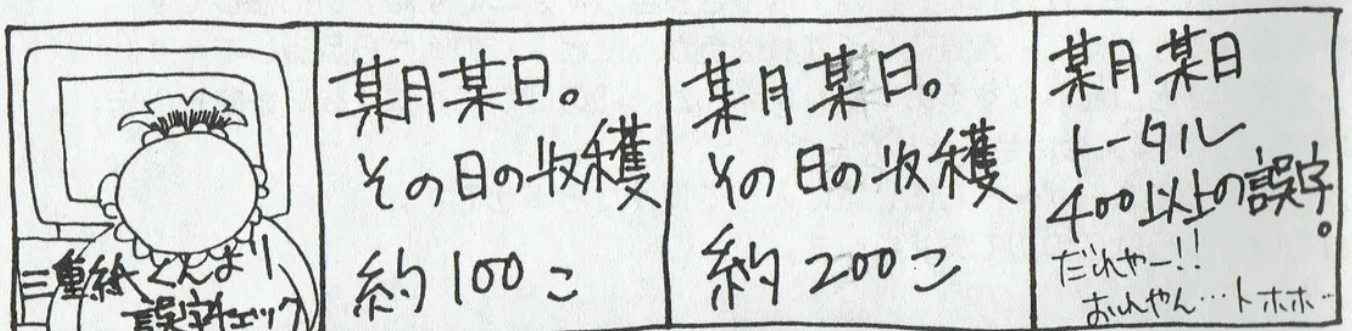 三重紙くんより
誤字チェック
某月某日。
その日の収穫
約100こ
某月某日。
その日の収穫
約200こ
某月某日
トータル
400以上の誤字。
だれやー!!
おれやん…トホホ…